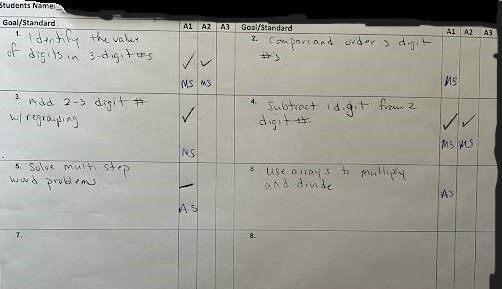 Students Name:
Goal/Standard A1 A2 A3 Goal/Standard A1 A2 A3
1. Identify the value
of digits in 3-digit #s
✓ ✓
MS MS
2. Compare and order 3 digit
#'s
NS
3. Add 2-3 digit #
w/ regrouping
✓
NS
4. Subtract 1 digit from 2
digit #
✓ ✓
MS MS
5. Solve multi step
word problems
–
AS
6. Use arrays to multiply
and divide
AS
7. 8.